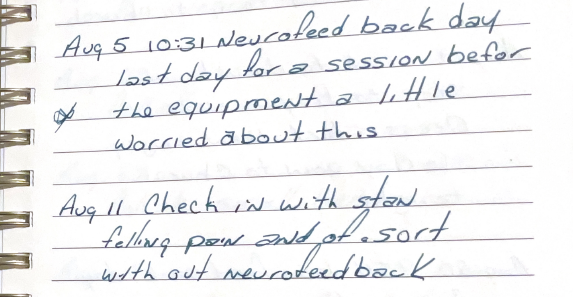 Aug 5 10:31 Neurofeed back day
last day for a session befor
the equipment a little
worried about this
Aug 11 Check in with stan
felling pain and of. sort
with out neurofeedback